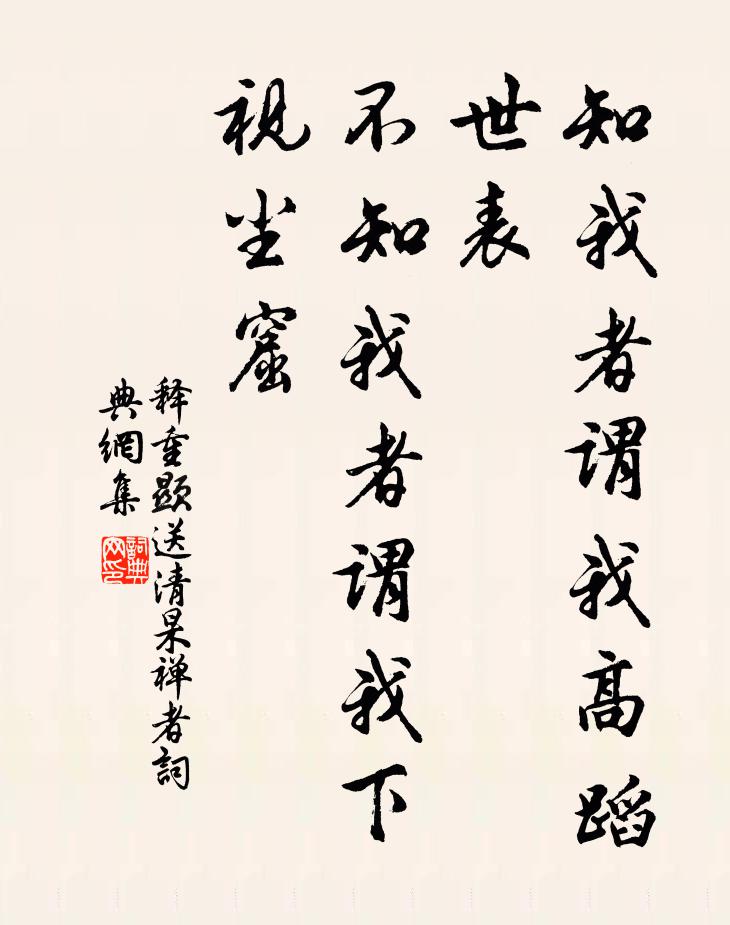 知我者谓我高蹈
世表
不知我者谓我下
视尘窟
释重顯送清杲禅者詞
典網集
詞典
网印